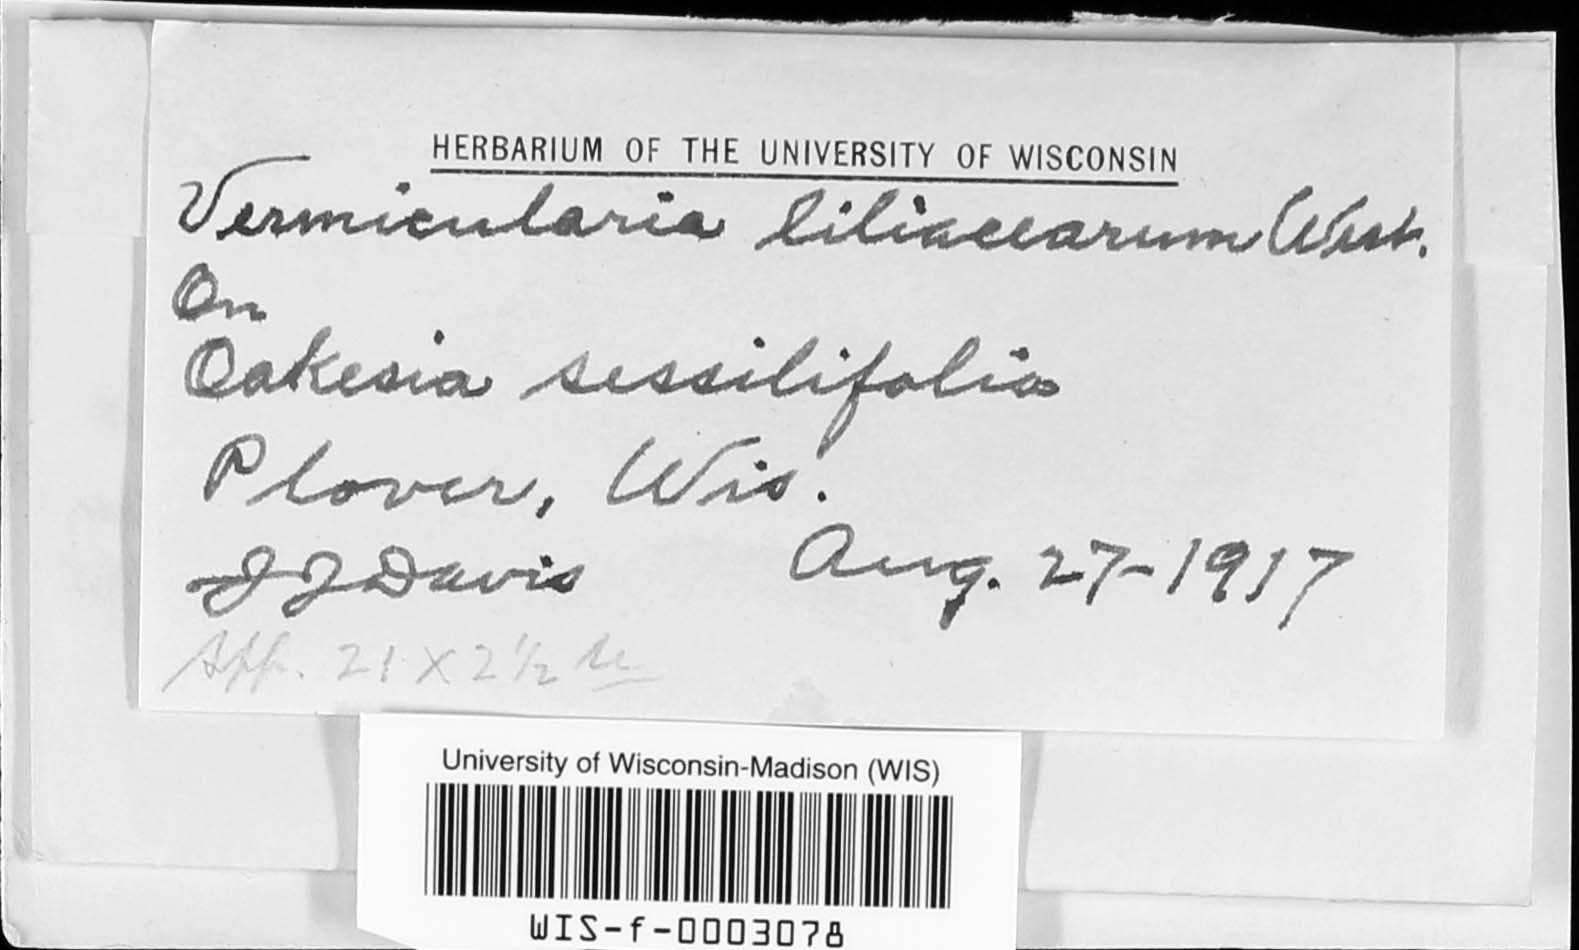 HERBARIUM OF THE UNIVERSITY OF WISCONSIN
Vermicularia liliacearum West.
On
Oakesia sessilifolia
Plover, Wis.
J J Davis Aug. 27-1917
21 X 2 1/2
University of Wisconsin-Madison (WIS)
WIS-f-0003078